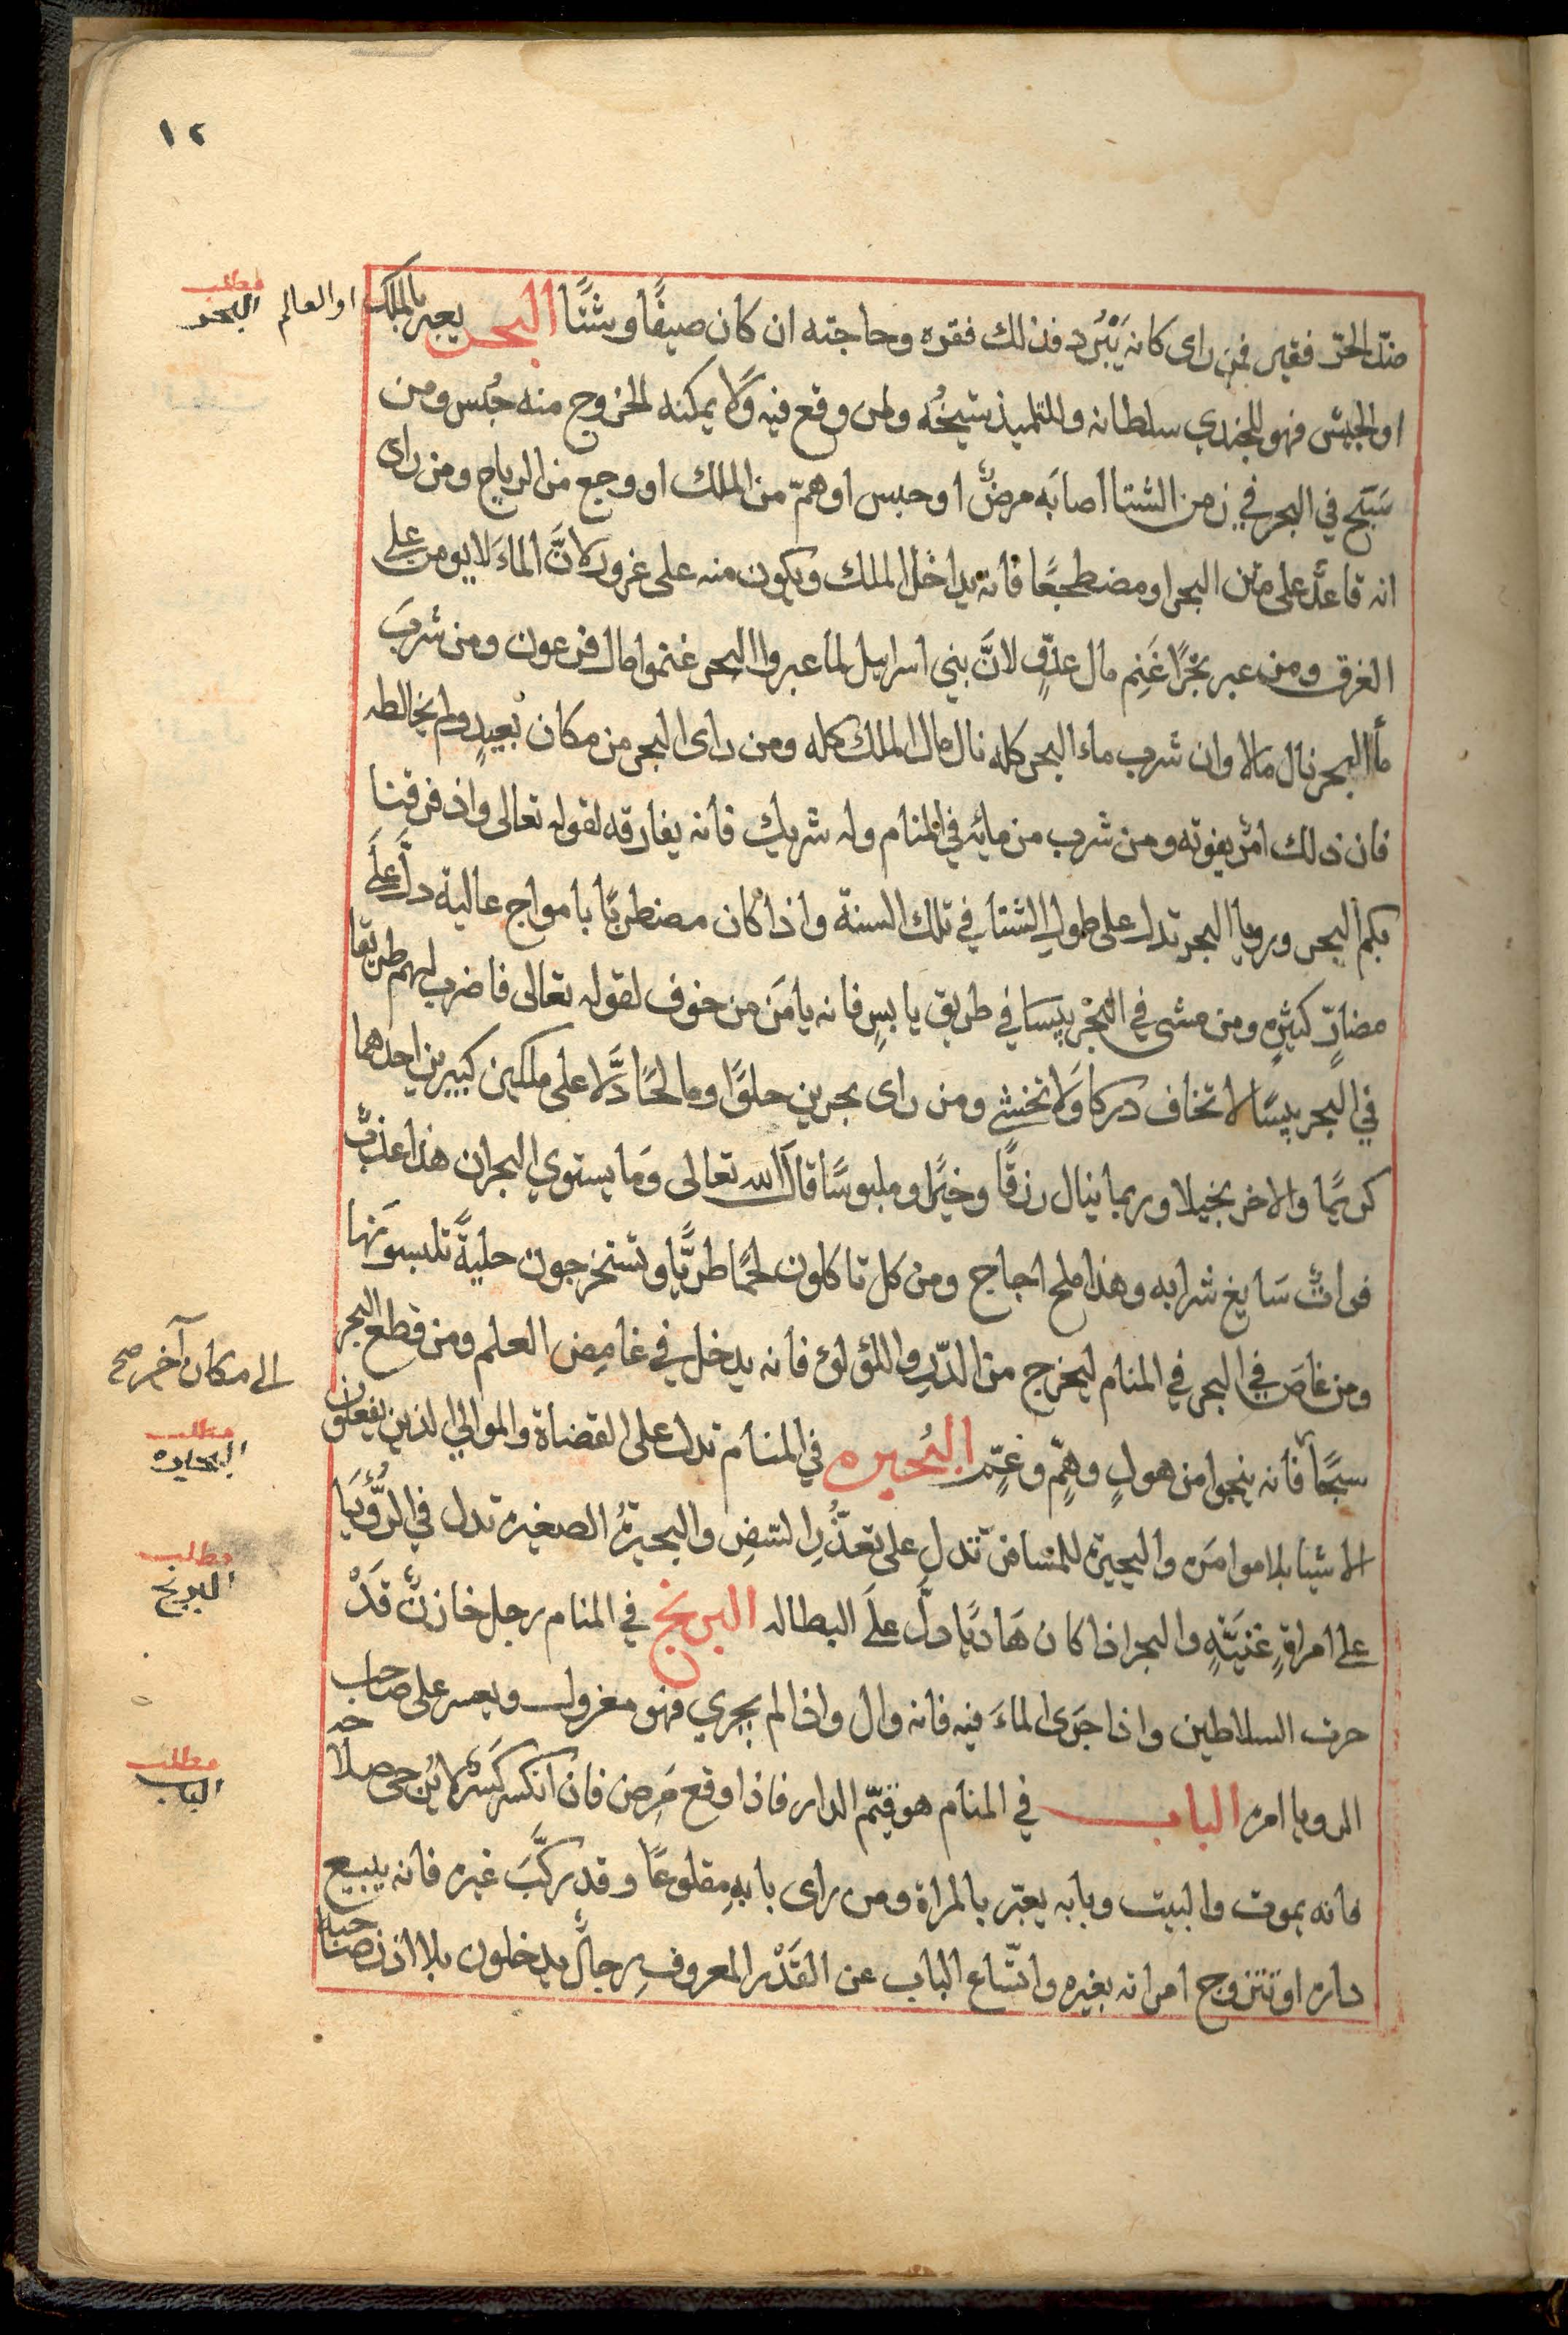 ١٢
ضد الحرّ فقير فمن راى كانه يَبْرُد فذلك فقره وحاجته ان كان صيفًا وشتًا البحر يعبر بالملك او العالم
مطلب
البحر
او الجيش فهو للجندي سلطانه وللتلميذ شيخُه ولمن وقع فيه وَلا يمكنه الخروج منه حُبس ومن
سَبَح في البحر في زمن الشتا اصابَه مرضٌ او حبس او همّ من الملك او وجع من الرياح ومن راى
انه قاعدٌ على متن البحر او مضطجعًا فانه يداخل الملك ويكون منه على غرور لانَّ الماءَ لا يومن على
الغرق ومن عبر بحْرًا غَنِم مال عدوٍّ لانَّ بني اسرايل لما عبروا البحر غنموا مال فرعون ومن شربَ
مأ البحر نال مالا وان شرب ماء البحر كله نال مال الملك كله ومن راى البحر من مكان بُعيدٍ ولم يخالطه
فان ذلك امرٌ يفوته ومن شرب من مايه في المنام وله شريك فانه يفارقه لقوله تعالى واذ فرقنا
بكم البحر ورويا البحر تدل على طول الشتا في تلك السنة واذا كان مضطربًا بامواج عالية دلَّ عَلَى
مضارٍّ كثيرٍه ومن مشى في البحْر يبسا في طريق يابسٍ فانه يامَن من خوف لقوله تعالى فاضرب لهم طريقا
في البحر يبسًا لا تخاف دركا وَلا تخشى ومن راى بحرين حلوًا ومالحًا دَلَّا على ملكين كبيرين احدهما
كريمًا والاخر بخيلا وربما ينال رزقًا وخيًرا وملبوسًا قال الله تعالى وَما يستوي البحران هذا عذبٌ
فراتٌ سَايغ شرابه وهذا ملح اجاج ومن كل تاكلون لحمًا طريًّا وتستخرجون حليةً تلبسونَها
ومن غاصَ في البحر في المنام ليخرج من الدّرِ واللؤلوء فانه يدخل في غامِض العلم ومن قطع البحر
الى مكان آخر صح
سبحًا فانه ينجوا من هولٍ وهمٍّ وغمٍّ البُحيره في المنام تدل على القضاة والموالي الذين يفعلون
مطلب
البحيره
الاشيا بلا موامرَه والبحيرة للمسافر تدل على تعذُّرِ السفرِ والبحيرةُ الصغيره تدل في الرُّؤيَا
على امراةٍ غَنيَّةٍ والبحر اذا كان هَاديًا دلَّ عَلَى البطاله البربخ في المنام رجل خازنٌ قَدْ
مطلب
البربخ
حرث السلاطين واذا جرَى الماءَ فيه فانه وال واذا لم يجري فهو معزول ويعسر على صاحب
الرويا امره الباب في المنام هو قيّم الدار فاذا وقع مَرض فان انكسر كَسْرًا لا يُرجى صلاحه
مطلب
الباب
فانه يموت والبيت وبابه يعبّر بالمراة ومن راى بابهِ مقلوعًا وقد ركَّبَ غيره فانه يبيع
داره او تتزوج امراته بغيره واتّساع الباب عن القَدْر المعروفِ رجالٌ يدخلون بلا اذن صاحبها